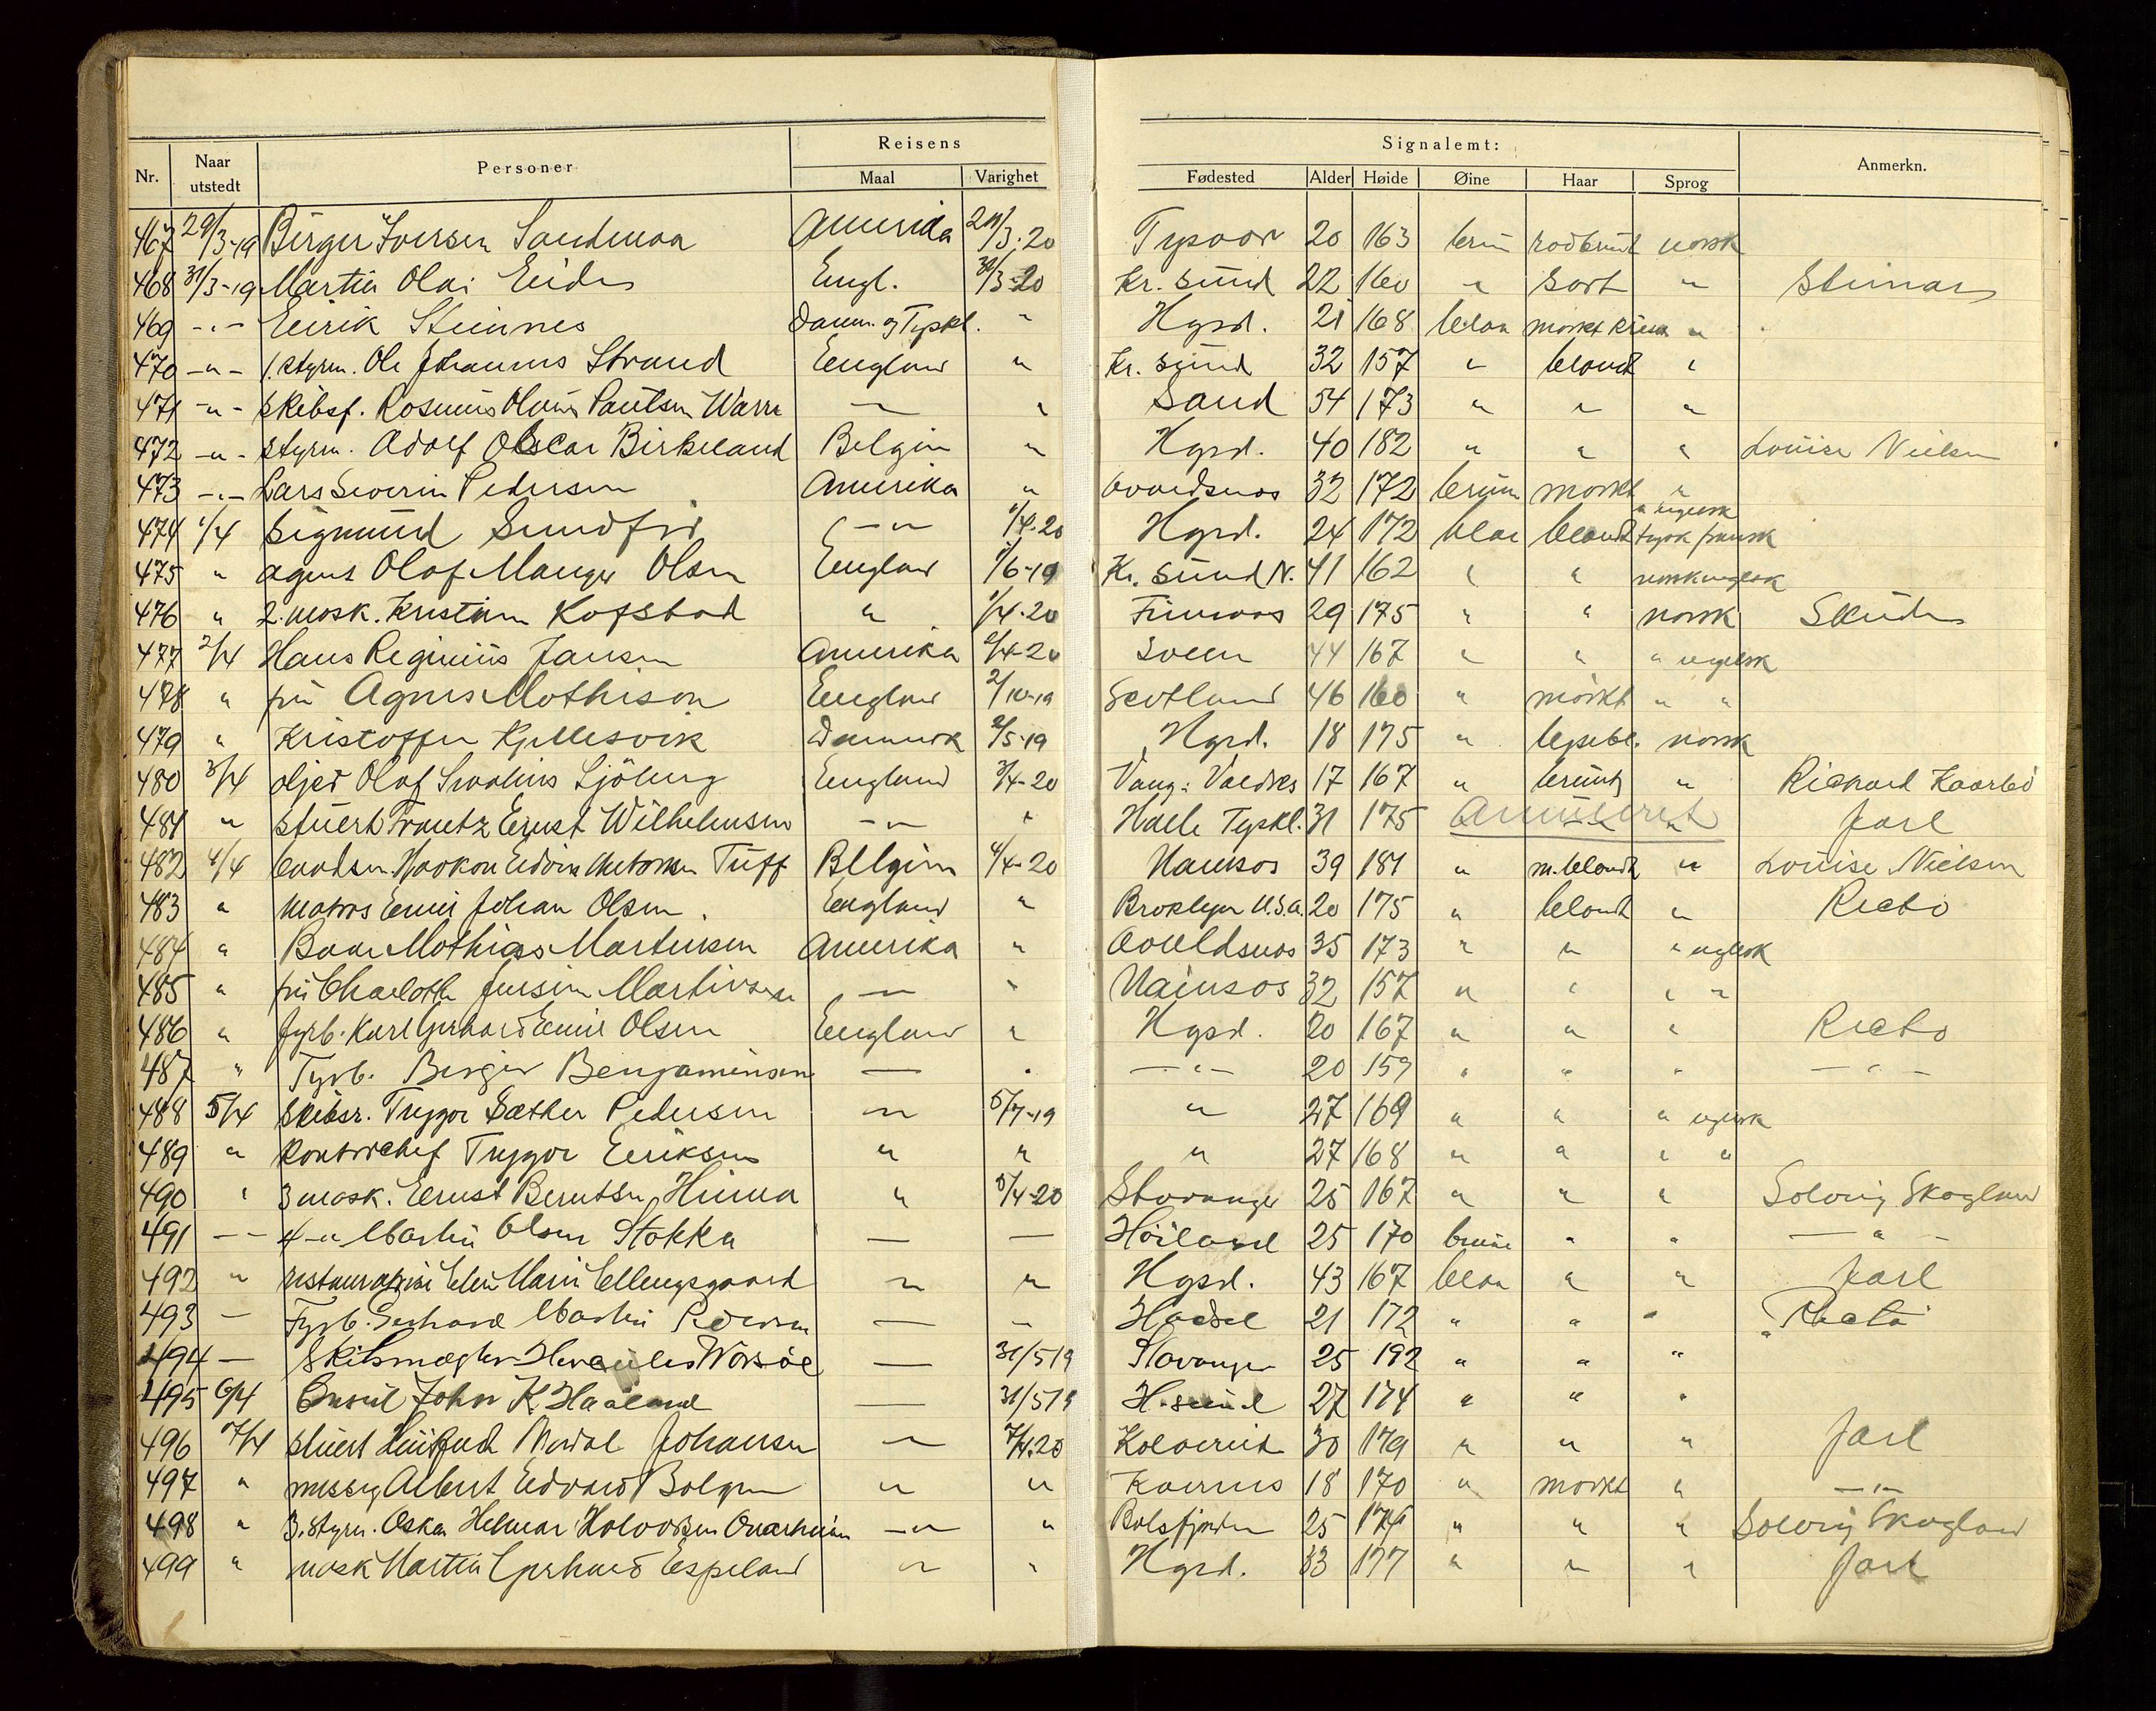 Reisens
Signalemt:
Nr. Naar utstedt Personer Maal Varighet Fødested Alder Høide Øine Haar Sprog Anmerkn.
467 29/3-19 Birger Iversen Sandmoa Amerika 29/3-20 Tysvær 20 163 brun rødbrunt norsk
468 31/3-19 Martin Olai Eide Engl. 31/3-20 Kr. sund 22 160 " sort " Steinar
469 -"- Eirik Steinnes Danm. og Tyskl. " Hgsd. 21 168 blaa mørkt "
470 -"- 1. styrm. Ole Johannes Strand England " Kr. sund 32 157 " blondt "
471 -"- skibsf. Rasmus Paulsen - " Sand 54 173 " " "
472 -"- styrm. Adolf Oscar Birkeland Belgien " Hgsd. 40 182 " " " Louise Nielsen
473 -"- Lars Severin Pedersen Amerika " Avaldsnes 32 172 brun mørkt "
474 1/4 Sigmund Sundfør -"- 1/4-20 Hgsd. 24 172 blaa blondt " engelsk tysk fransk
475 " agent Olaf Mauger Olsen England 1/6-19 Kr. sund N. 41 162 " " norsk engelsk
476 " 2. mask. Kristian Kofstad " 1/4-20 Finnaas 29 175 " " norsk Skude
477 2/4 Hans Reginius Jansen Amerika 2/4-20 Sveen 44 167 " " " engelsk
478 " fru Agnes Mathison England 2/10-19 Scotland 46 160 " mørkt " "
479 " Kristoffer Kjellesvik Danmark 2/5-19 Hgsd. 18 175 " lysebl. norsk
480 3/4 Olaf Sjöberg England 3/4-20 Vang: Valdres 17 167 " brunt " Richard Kaarbø
481 " stuert Frantz Ernst Wilhelmsen -"- " Halle Tyskl. 31 175 Annulleret " Jarl
482 4/4 baadsm. Haakon Edvin Tuff Belgien 4/4-20 Namsos 39 181 " m. blondt " Louise Nielsen
483 " matros Emil Johan Olsen England " Broklyn U.S.A. 20 175 " blondt "
484 " Mathias Martinsen Amerika " Avaldsnes 35 173 " " " engelsk
485 " fru Charlotte Martinsen -"- " Namsos 32 157 " " " "
486 " fyrb. Karl Gerhard Emil Olsen England " Hgsd. 20 167 " " "
487 " Fyrb. Birger Benjaminsen - " -"- 20 159 " " " -"-
488 5/4 skibsr. Trygve Sæther Pedersen " 5/7-19 " 27 169 " " " engelsk
489 " Kontorchef Trygve Eriksen " " " 27 168 " " " "
490 " 3 mask. Ernst Berntsen Hinna " 5/4-20 Stavanger 25 167 " " " Solveig Skogland
491 -- 4-"- Martin Olsen Stokka - - Høiland 25 170 brune " " -"-
492 " Marie Ellingsgaard " " Hgsd. 43 167 blaa " " Jarl
493 - Fyrb. Gerhard Martin Pedersen - - Hadsel 21 172 " " "
494 - Skibsmægler Hercules Worsøe - 31/519 Stavanger 25 192 " " "
495 6/4 Consul John K. Haaland - 31/519 H.sund 27 174 " " "
496 7/4 stuert Johansen " 7/4.20 Kolvereid 30 179 " " " Jarl
497 " messeg Albert Edvard " " 18 170 " mørkt " -"-
498 " 3. styrm. Oskar Helmar -"- " Balsfjorden 25 174 " " " Solveig Skogland
499 " mask Martin Gerhard Espeland " " Hgsd. 33 177 " " " Jarl